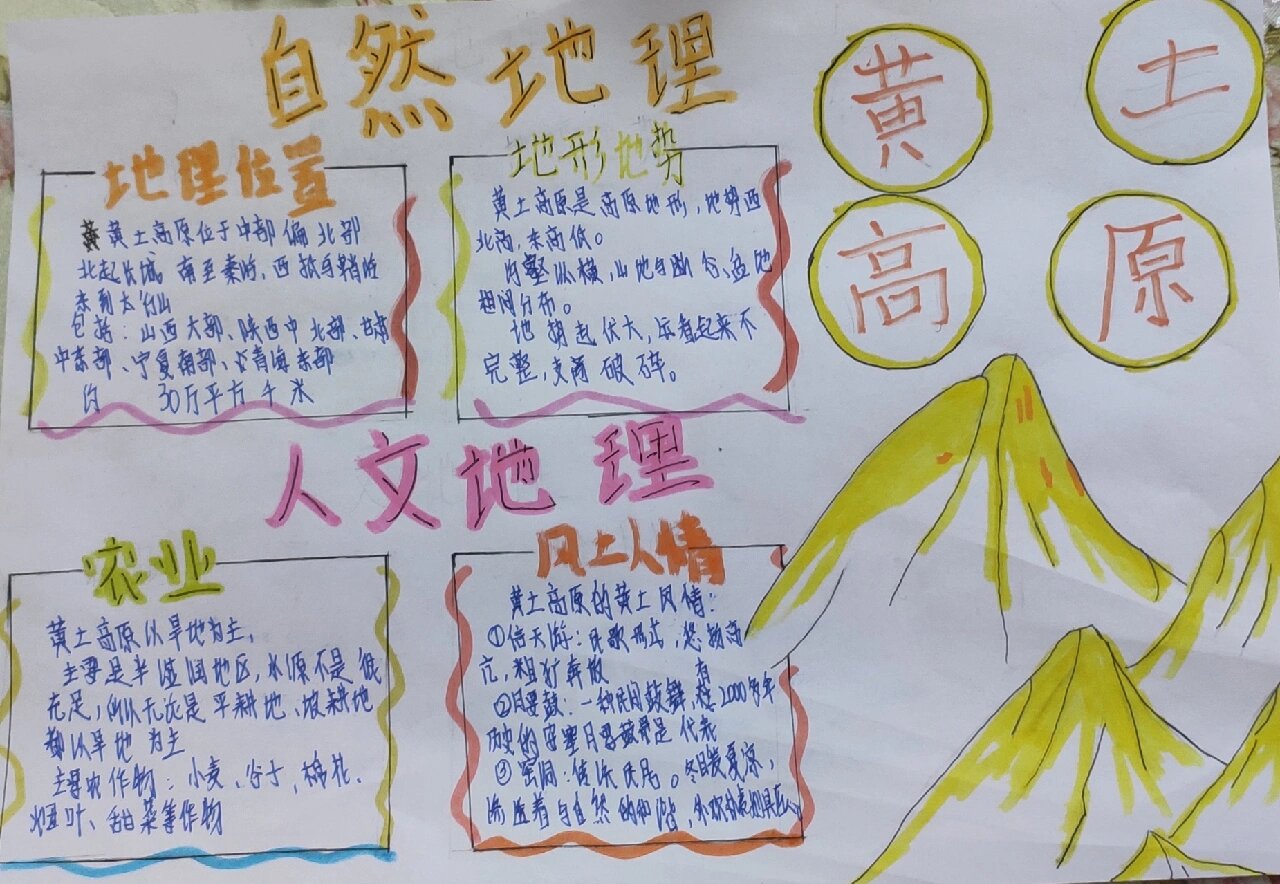 自然地理
黄土
高原
地理位置
黄土高原位于中部偏北部
北起长城 南至秦岭、西抵乌鞘岭
东到太行山
包括：山西大部、陕西中北部、甘肃
中东部、宁夏南部、青海东部
约 30万平方千米
地形地势
黄土高原是高原地形，地势西
北高，东南低。
沟壑纵横，山地与 谷、盆地
相间分布。
地势起伏大，看起来不
完整，支离破碎。
人文地理
农业
黄土高原以旱地为主，
主要是半湿润地区，水源不是很
充足，所以无论是平耕地、坡耕地
都以旱地为主
主要农作物：小麦、谷子、棉花、
烟叶、甜菜等作物
风土人情
黄土高原的黄土风情：
①信天游：民歌形式，悠扬高
亢，粗犷奔放
②腰鼓：一种民间鼓舞，有2000多年
历史的 腰鼓是代表
③窑洞：传统民居。冬暖夏凉，
洋溢着与自然的和谐，